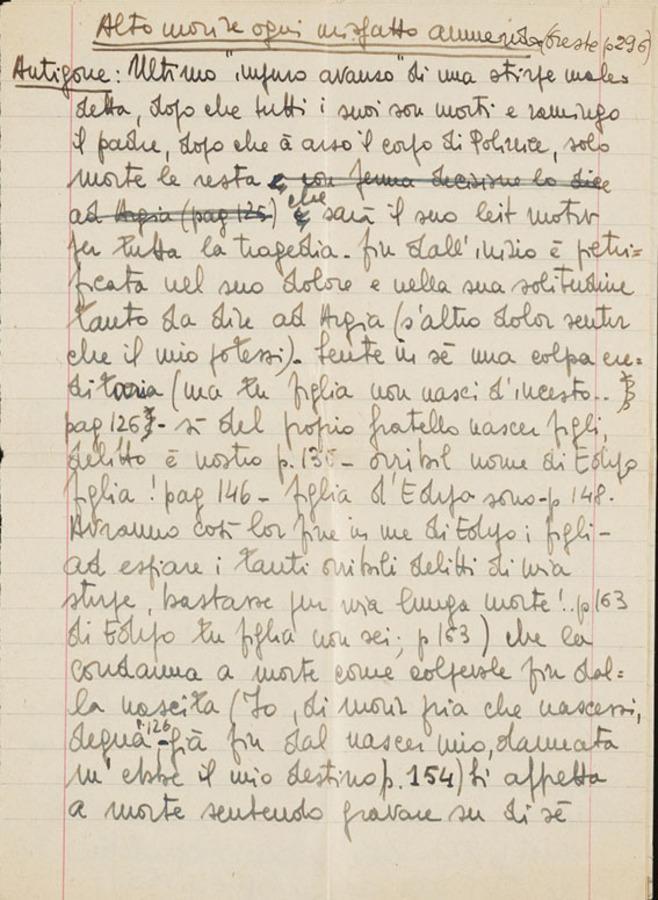 Alto morire ogni misfatto ammenda (Oreste p 296)
Antigone: Ultimo "impuro avanzo" di una stirpe male=
detta, dopo che tutti i suoi son morti e ramingo
il padre, dopo che à arso il corpo di Polinice, solo
morte le resta e con ferma decisione lo dice
ad Argia (pag 125) che sarà il suo leit motiv
per tutta la tragedia. fin dall'inizio è pietri=
ficata nel suo dolore e nella sua solitudine
tanto da dire ad Argia (s'altro dolor sentir
che il mio potessi). Sente in sé una colpa ere=
ditaria (ma tu figlia non nasci d'incesto...
pag 126 - sì del proprio fratello nascer figli,
delitto è nostro p. 135 - orribil nome di Edipo
figlia! pag 146 - figlia d'Edipo sono - p 148.
Avranno così lor fine in me di Edipo i figli -
ad espiare i tanti orribili delitti di mia
stirpe, bastasse pur mia lunga morte!.. p 163
di Edipo tu figlia non sei; p 163) che la
condanna a morte come colpevole fin dal=
la nascita (Io, di morir pria che nascessi,
degna p. 126 - già fin dal nascer mio, dannata
m'ebbe il mio destino p. 154) Si affretta
a morte sentendo gravare su di sé